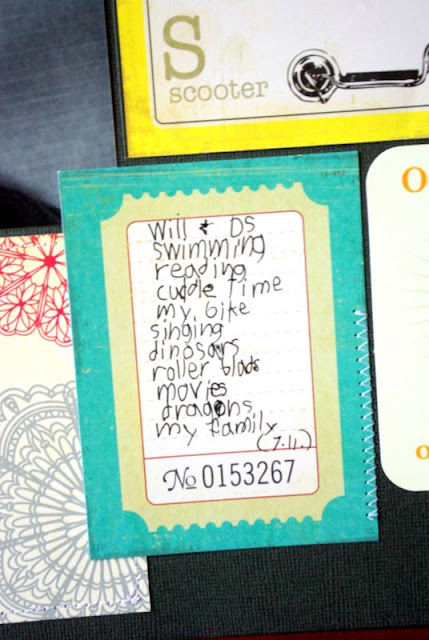 S
scooter
will & DS
swimming
reading
cuddle time
my bike
singing
dinosars
roller blads
movies
dragons
my family
(7.11.)
No 0153267
O
O